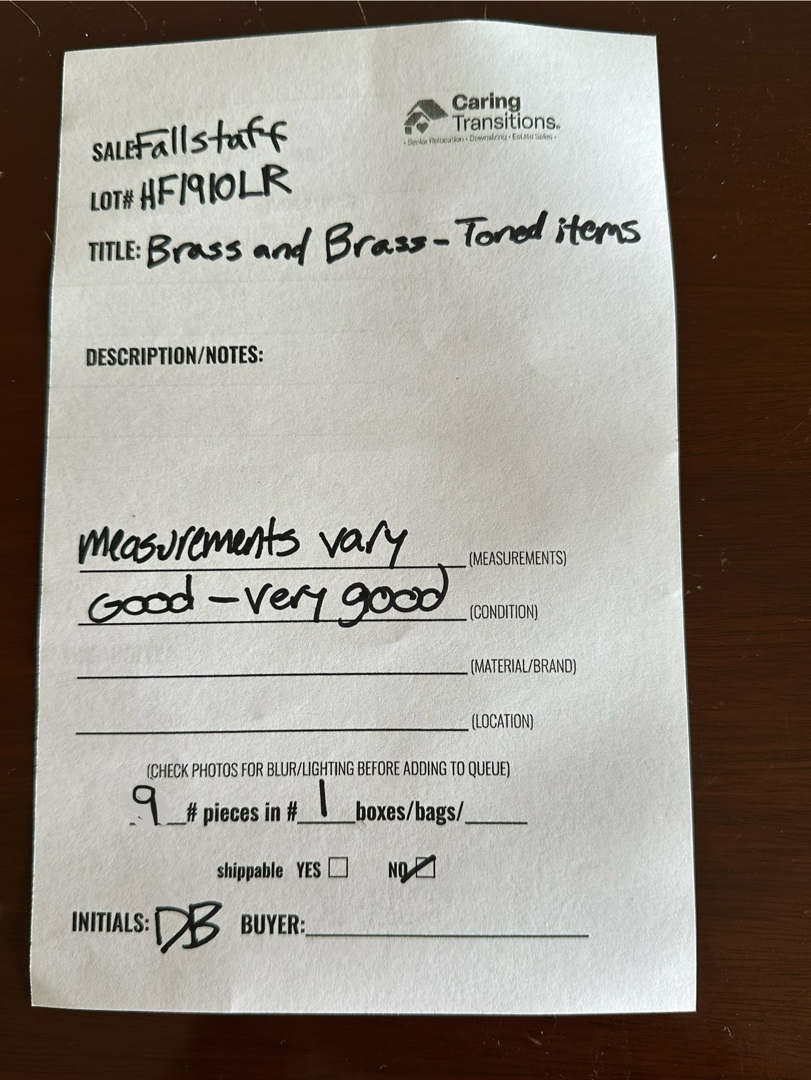 Caring
Transitions®
• Senior Relocation • Downsizing • Estate Sales •
SALE: Fallstaff
LOT# HF1910LR
TITLE: Brass and Brass-Toned items
DESCRIPTION/NOTES:
Measurements vary (MEASUREMENTS)
Good - very good (CONDITION)
(MATERIAL/BRAND)
(LOCATION)
(CHECK PHOTOS FOR BLUR/LIGHTING BEFORE ADDING TO QUEUE)
9 # pieces in # 1 boxes/bags/
shippable YES ☐ NO ☑
INITIALS: DB BUYER: